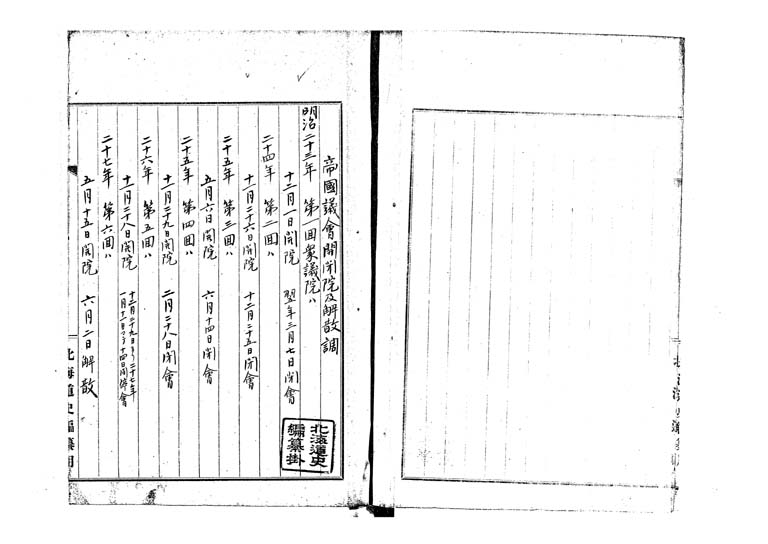 帝國議會開閉院及解散調
明治二十三年 第一回衆議院ハ
十二月一日開院 翌年三月七日閉會
二十四年 第二回ハ
十一月二十六日開院 十二月二十五日閉會
二十五年 第三回ハ
五月六日開院 六月十四日閉會
二十五年 第四回ハ
十一月二十九日開院 二月二十八日閉會
二十六年 第五回ハ
十一月二十八日開院 十二月二十九日ヨリ二十七年
一月十一日マテ十四日間停會
二十七年 第六回ハ
五月十五日開院 六月二日解散
北海道史編纂用
北海道史
編纂掛